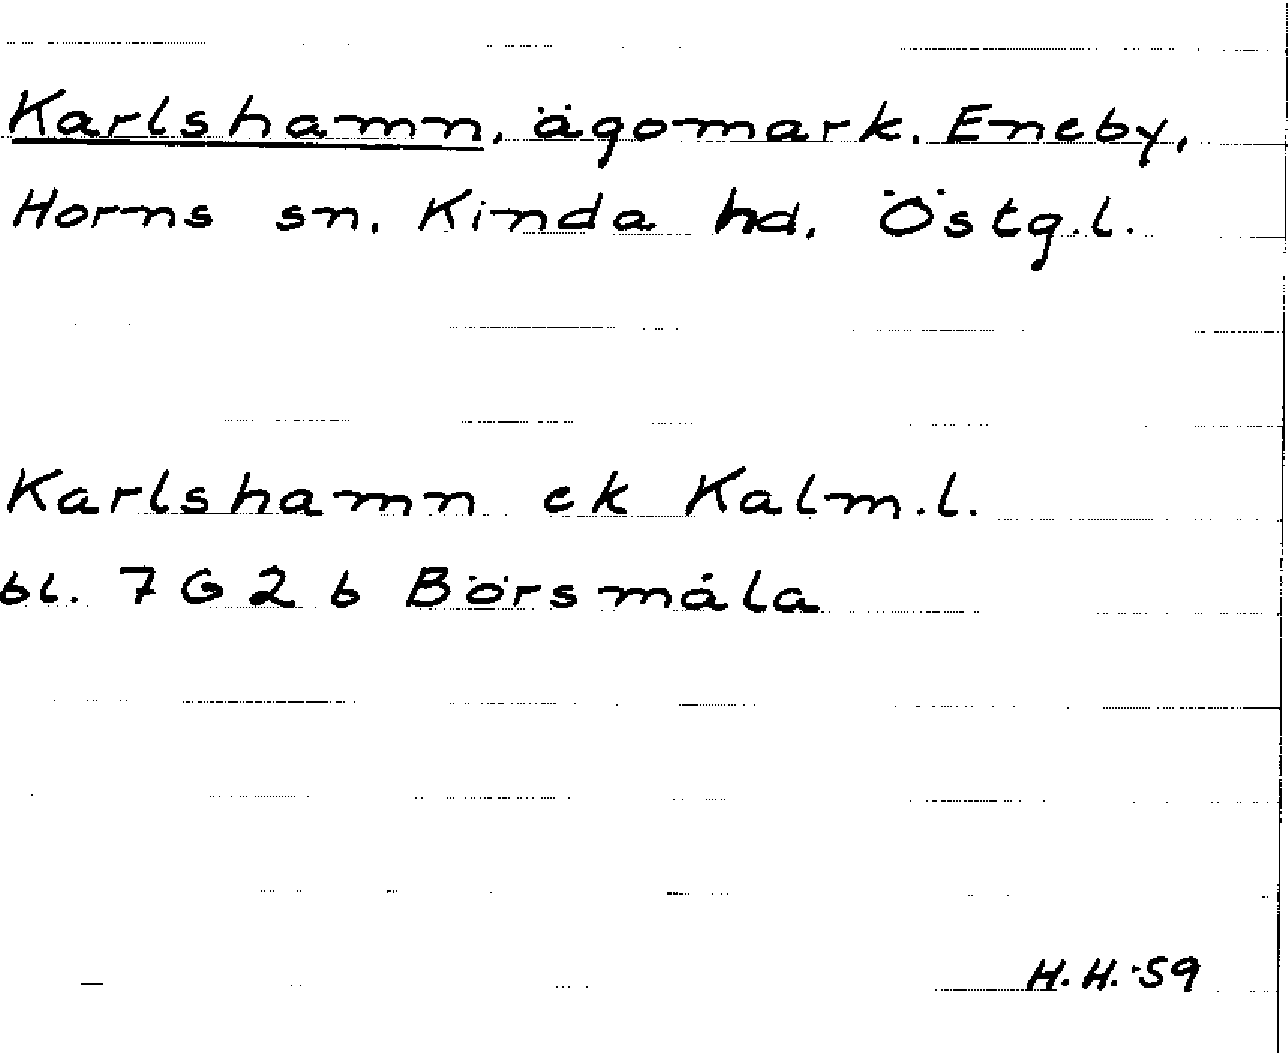 Karlshamn, ägomark. Eneby,
Horns sn. Kinda hd. Östg.l.
Karlshamn ek Kalm.l.
bl. 7 G 2 b Börsmåla
H.H. '59